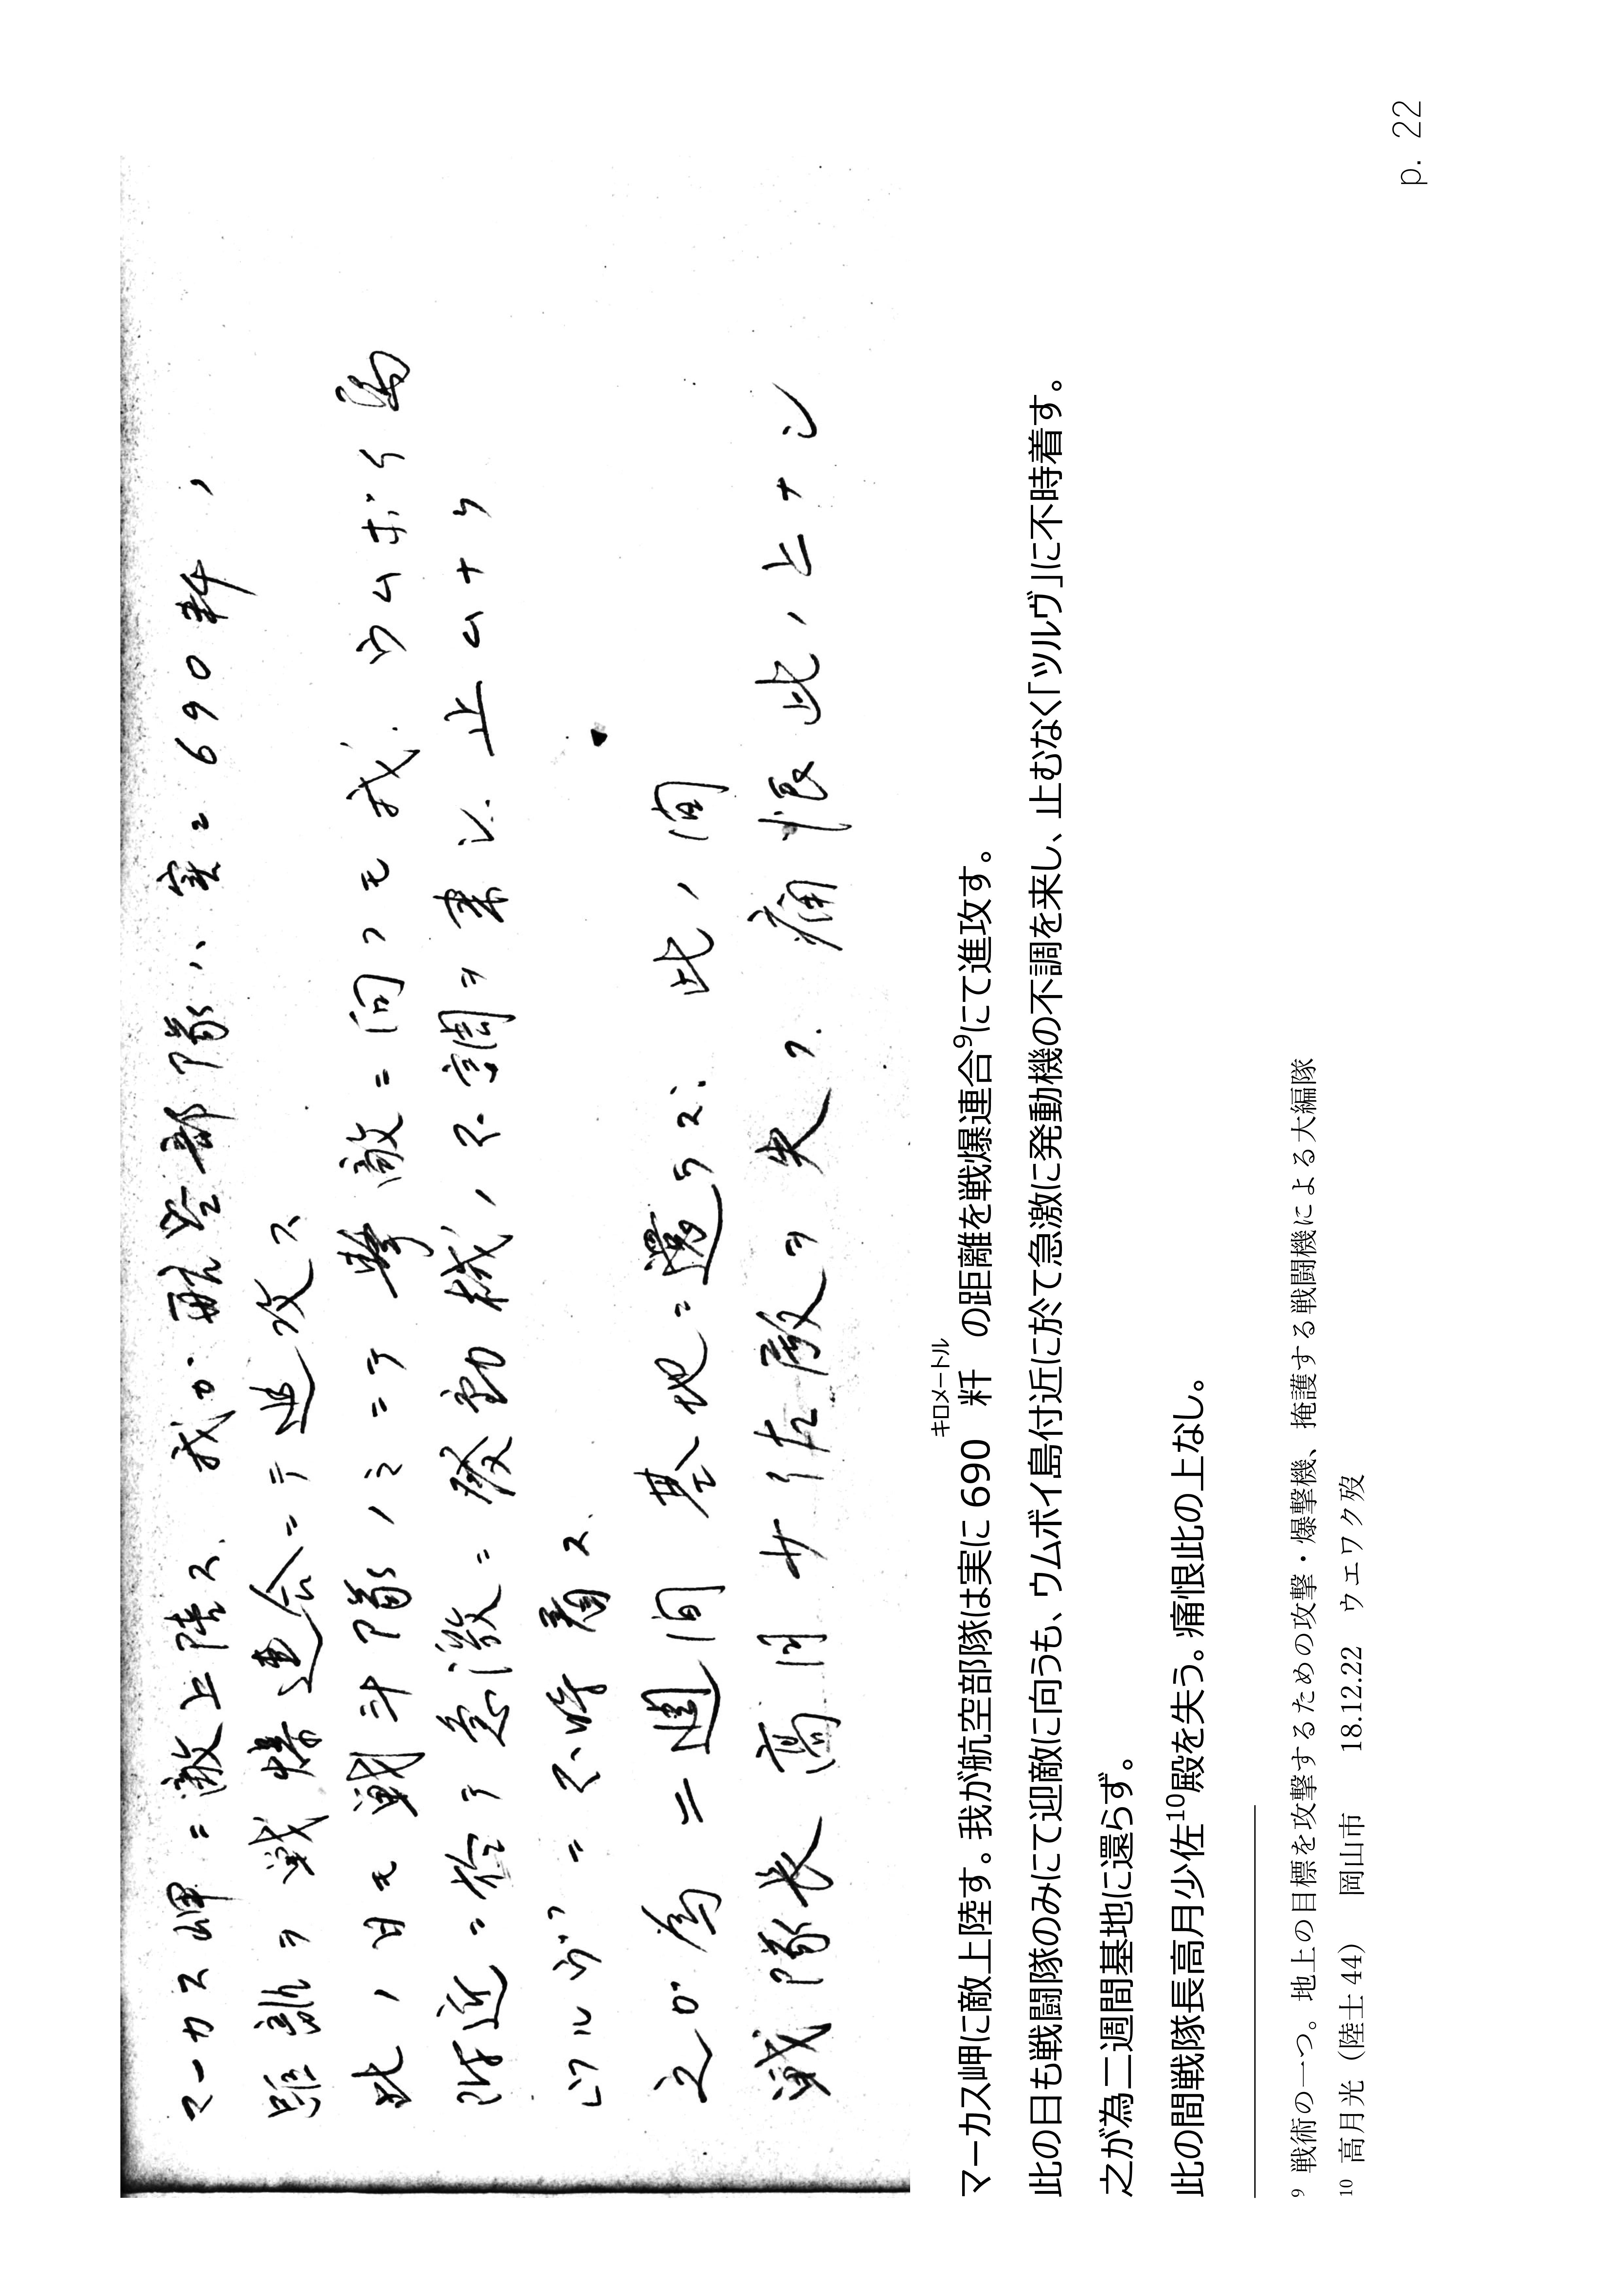 マーカス岬ニ敵上陸ス. 我ガ航空部隊ハ、実ニ690粁ノ
距離ヲ戦爆連合ニテ進攻ス
此ノ日モ戦斗隊ノミニテ撃敵ニ向フモ我. ウムボイ島
附近ニ於テ急激ニ發動機ノ不調ヲ来シ. 止ムナク
ツルヴニ不時着ス.
之ガ為二週間基地ニ還ラズ. 此ノ間
戦隊長高月少佐殿ヲ失フ. 痛恨此ノ上ナシ
マーカス岬に敵上陸す。我が航空部隊は実に 690 粁 の距離を戦爆連合9にて進攻す。
キロメートル
此の日も戦闘隊のみにて迎敵に向うも、ウムボイ島付近に於て急激に発動機の不調を来し、止むなく「ツルヴ」に不時着す。
之が為二週間基地に還らず。
此の間戦隊長高月少佐10殿を失う。痛恨此の上なし。
9 戦術の一つ。地上の目標を攻撃するための攻撃・爆撃機、掩護する戦闘機による大編隊
10 高月光（陸士 44） 岡山市 18.12.22 ウエワク歿
p. 22